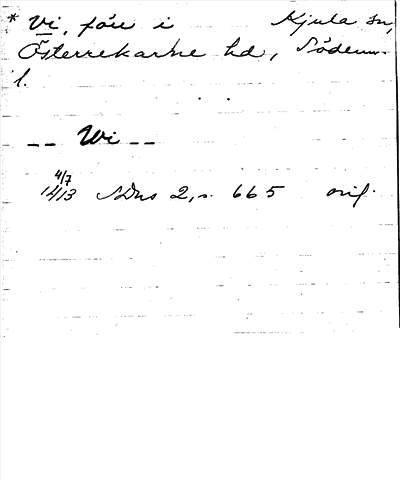 * Vi, förr i Kjula sn,
Österrekarne hd, Söderm-
l.
-- Wi --
4/7
1413 SDns 2, s. 665 orig.